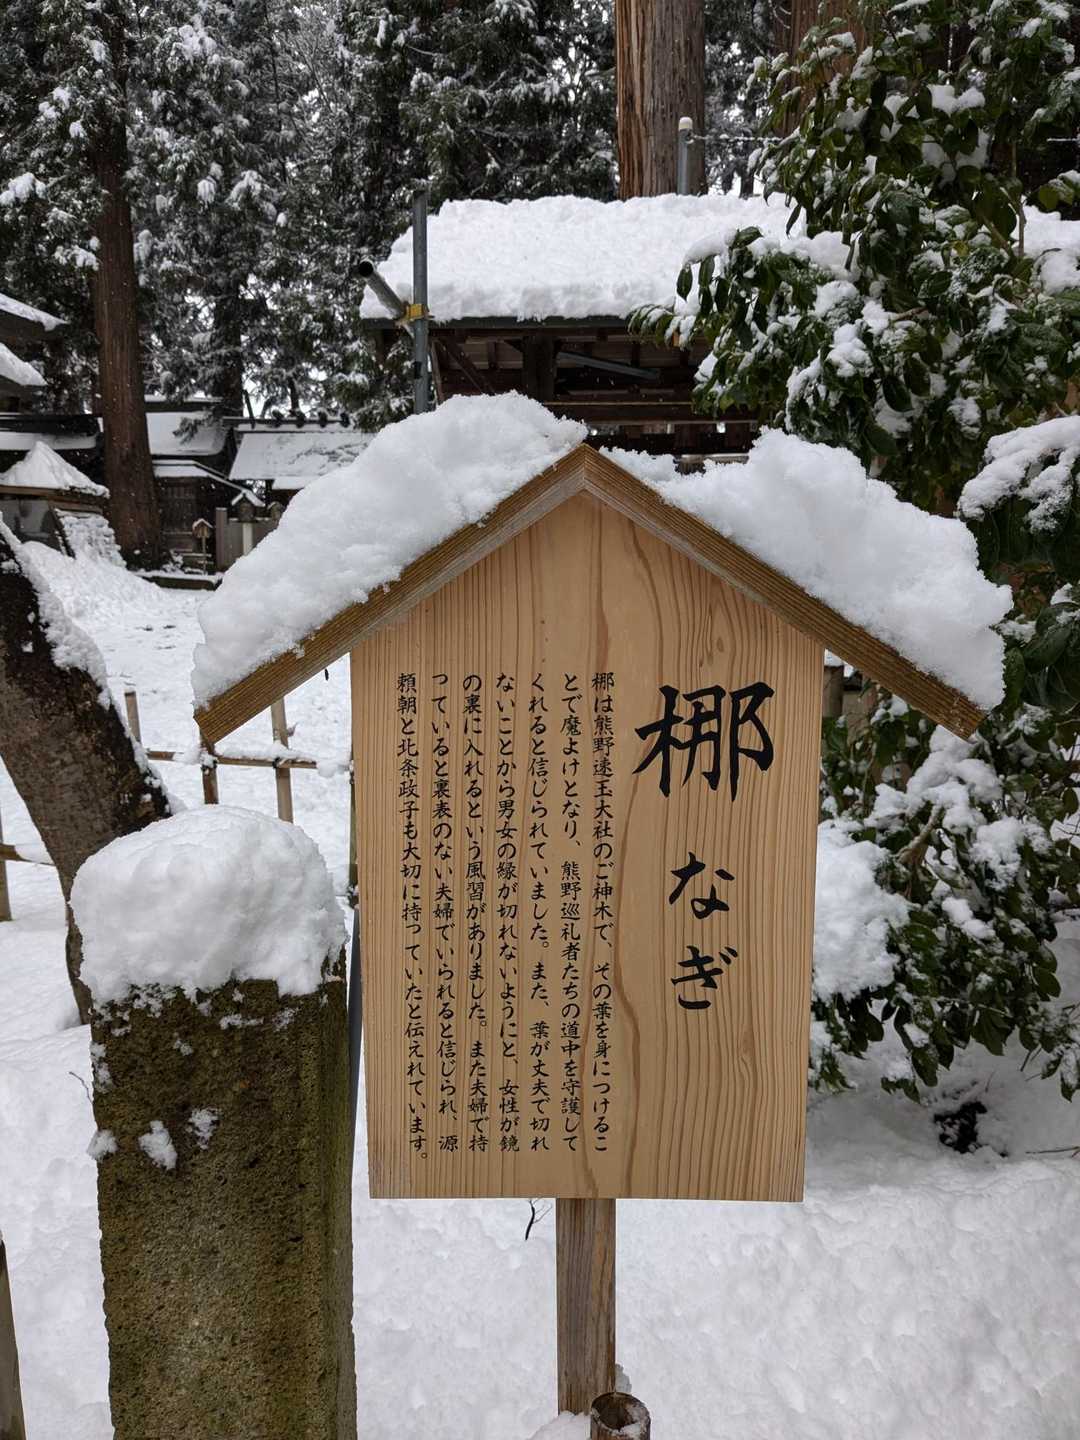 梛
なぎ
梛は熊野速玉大社のご神木で、その葉を身につけるこ
とで魔よけとなり、熊野巡礼者たちの道中を守護して
くれると信じられていました。また、葉が丈夫で切れ
ないことから男女の縁が切れないようにと、女性が鏡
の裏に入れるという風習がありました。また夫婦で持
っていると裏表のない夫婦でいられると信じられ、源
頼朝と北条政子も大切に持っていたと伝えれています。